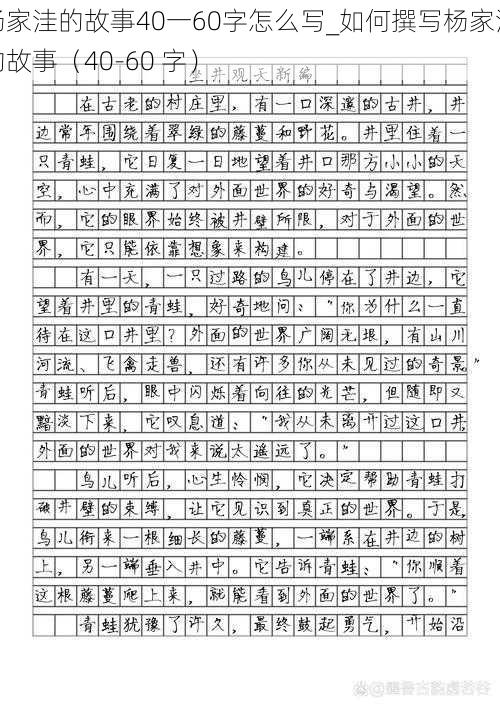 杨家洼的故事40一60字怎么写_如何撰写杨家洼
的故事（40-60 字）
坐井观天新编
在古老的村庄里，有一口深邃的古井，井
边常年围绕着翠绿的藤蔓和野花。井里住着一
只青蛙，它日复一日地望着井口那方小小的天
空，心中充满了对外面世界的好奇与渴望。然
而，它的眼界始终被井壁所限，对于外面的世
界，它只能依靠想象来构建。
有一天，一只过路的鸟儿停在了井边，它
望着井里的青蛙，好奇地问：“你为什么一直
待在这口井里？外面的世界广阔无垠，有山川
河流、飞禽走兽，还有许多你从未见过的奇景”
青蛙听后，眼中闪烁着向往的光芒，但随即又
黯淡下来，它叹息道：“我从未离开过这口井，
外面的世界对我来说太遥远了。”
鸟儿听后，心生怜悯，它决定帮助青蛙打
破井壁的束缚，让它见识到真正的世界。于是，
鸟儿衔来一根细长的藤蔓，一端系在井边的树
上，另一端垂入井中。它告诉青蛙：“你顺着
这根藤蔓爬上来，就能看到外面的世界了。”
青蛙犹豫了许久，最终鼓起勇气，开始沿